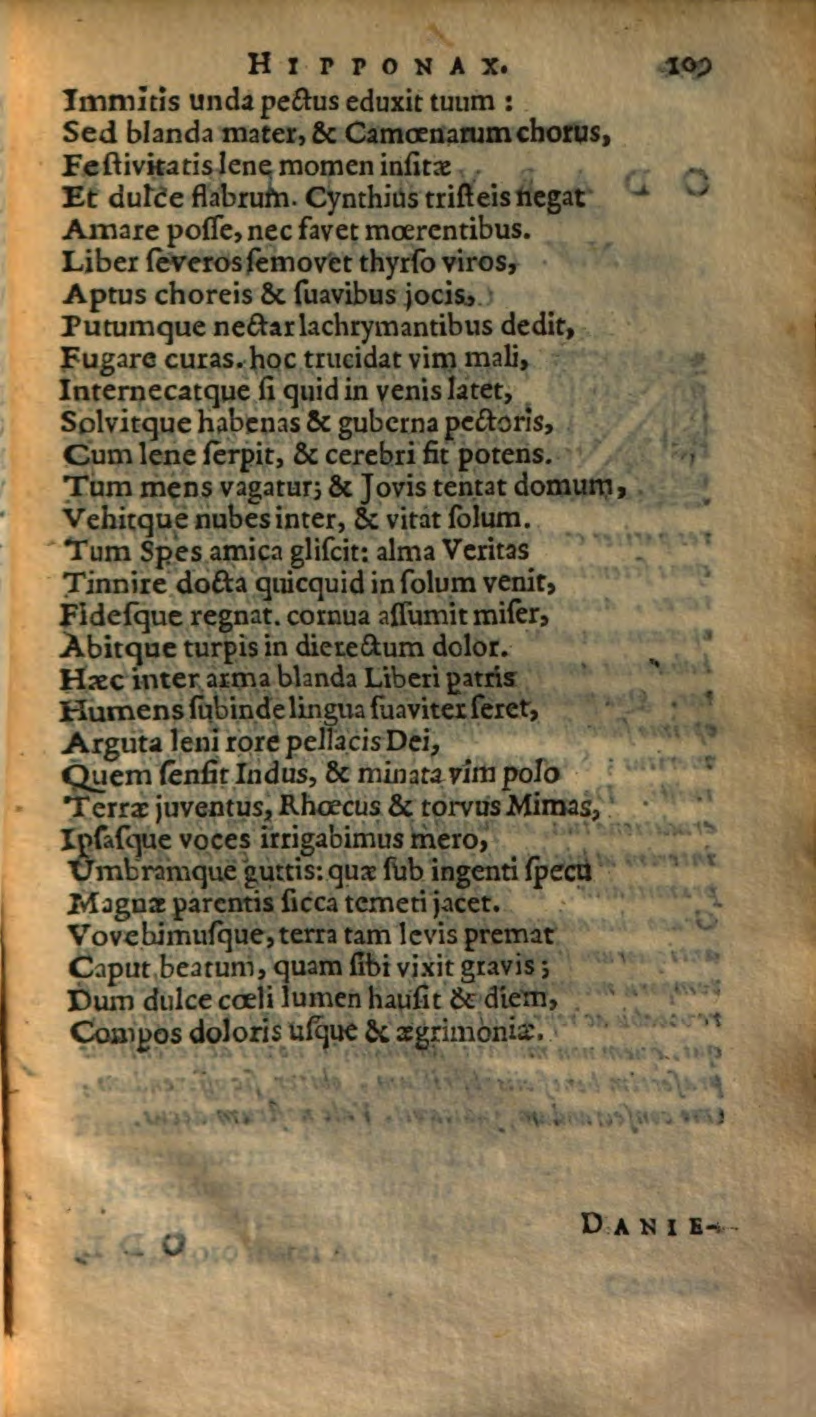 HIPPONAX. 109
Immitis unda pectus eduxit tuum :
Sed blanda mater, & Camœnarum chorus,
Feſtivitatis lene momen inſitæ
Et dulce flabrum. Cynthius triſteis negat
Amare poſſe, nec favet mœrentibus.
Liber ſeveros ſemovet thyrſo viros,
Aptus choreis & ſuavibus jocis,
Putumque nectar lachrymantibus dedit,
Fugare curas. hoc trucidat vim mali,
Internecatque ſi quid in venis latet,
Solvitque habenas & guberna pectoris,
Cum lene ſerpit, & cerebri fit potens.
Tum mens vagatur; & Jovis tentat domum,
Vehitque nubes inter, & vitat ſolum.
Tum Spes amica gliſcit: alma Veritas
Tinnire docta quicquid in ſolum venit,
Fideſque regnat. cornua aſſumit miſer,
Abitque turpis in dierectum dolor.
Hæc inter arma blanda Liberi patris
Humens ſubinde lingua ſuaviter ſeret,
Arguta leni rore pellacis Dei,
Quem ſenſit Indus, & minata vim polo
Terræ juventus, Rhœcus & torvus Mimas,
Ipſaſque voces irrigabimus mero,
Umbramque guttis: quæ ſub ingenti ſpecu
Magnæ parentis ſicca temeti jacet.
Vovebimuſque, terra tam levis premat
Caput beatum, quam ſibi vixit gravis ;
Dum dulce cœli lumen hauſit & diem,
Compos doloris uſque & ægrimoniæ.
DANIE-